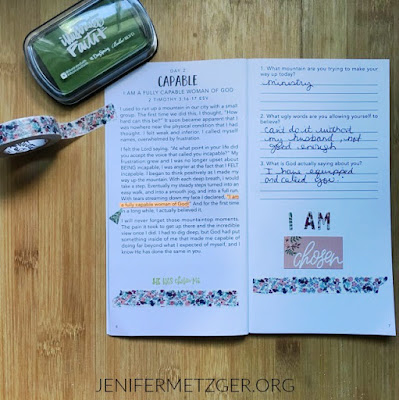 DAY 2
CAPABLE
I AM A FULLY CAPABLE WOMAN OF GOD.
2 TIMOTHY 3:16-17 ESV
I used to run up a mountain in our city with a small
group. The first time we did this, I thought, "How
hard can this be?" It soon became apparent that I
was nowhere near the physical condition that I had
thought. I felt weak and inferior. I called myself
names, consumed by frustration.
I felt the Lord saying, "At what point in your life did
you accept the voice that called you incapable?" My
frustration grew and I was no longer upset about
BEING incapable, I was angrier at the fact that I FELT
incapable. I began to think positively as I made my
way up the mountain. With each deep breath, I would
take a step. Eventually my steady steps turned into an
easy walk, and into a smooth jog, and into a full run.
With tears streaming down my face I declared, "I am
a fully capable woman of God!" And for the first time
in a long while, I actually believed it.
I will never forget those mountaintop moments.
The pain it took to get up there and the incredible
view once I did. I had to dig deep, but God had put
something inside of me that made me capable of
doing far beyond what I expected of myself, and I
know He has done the same in you.
1. What mountain are you trying to make your
way up today?
Ministry
2. What ugly words are you allowing yourself to
believe?
Can't do it without
my husband, not
good enough
3. What is God actually saying about you?
I have equipped
and called you.
I AM
chosen
JENIFERMETZGER.ORG